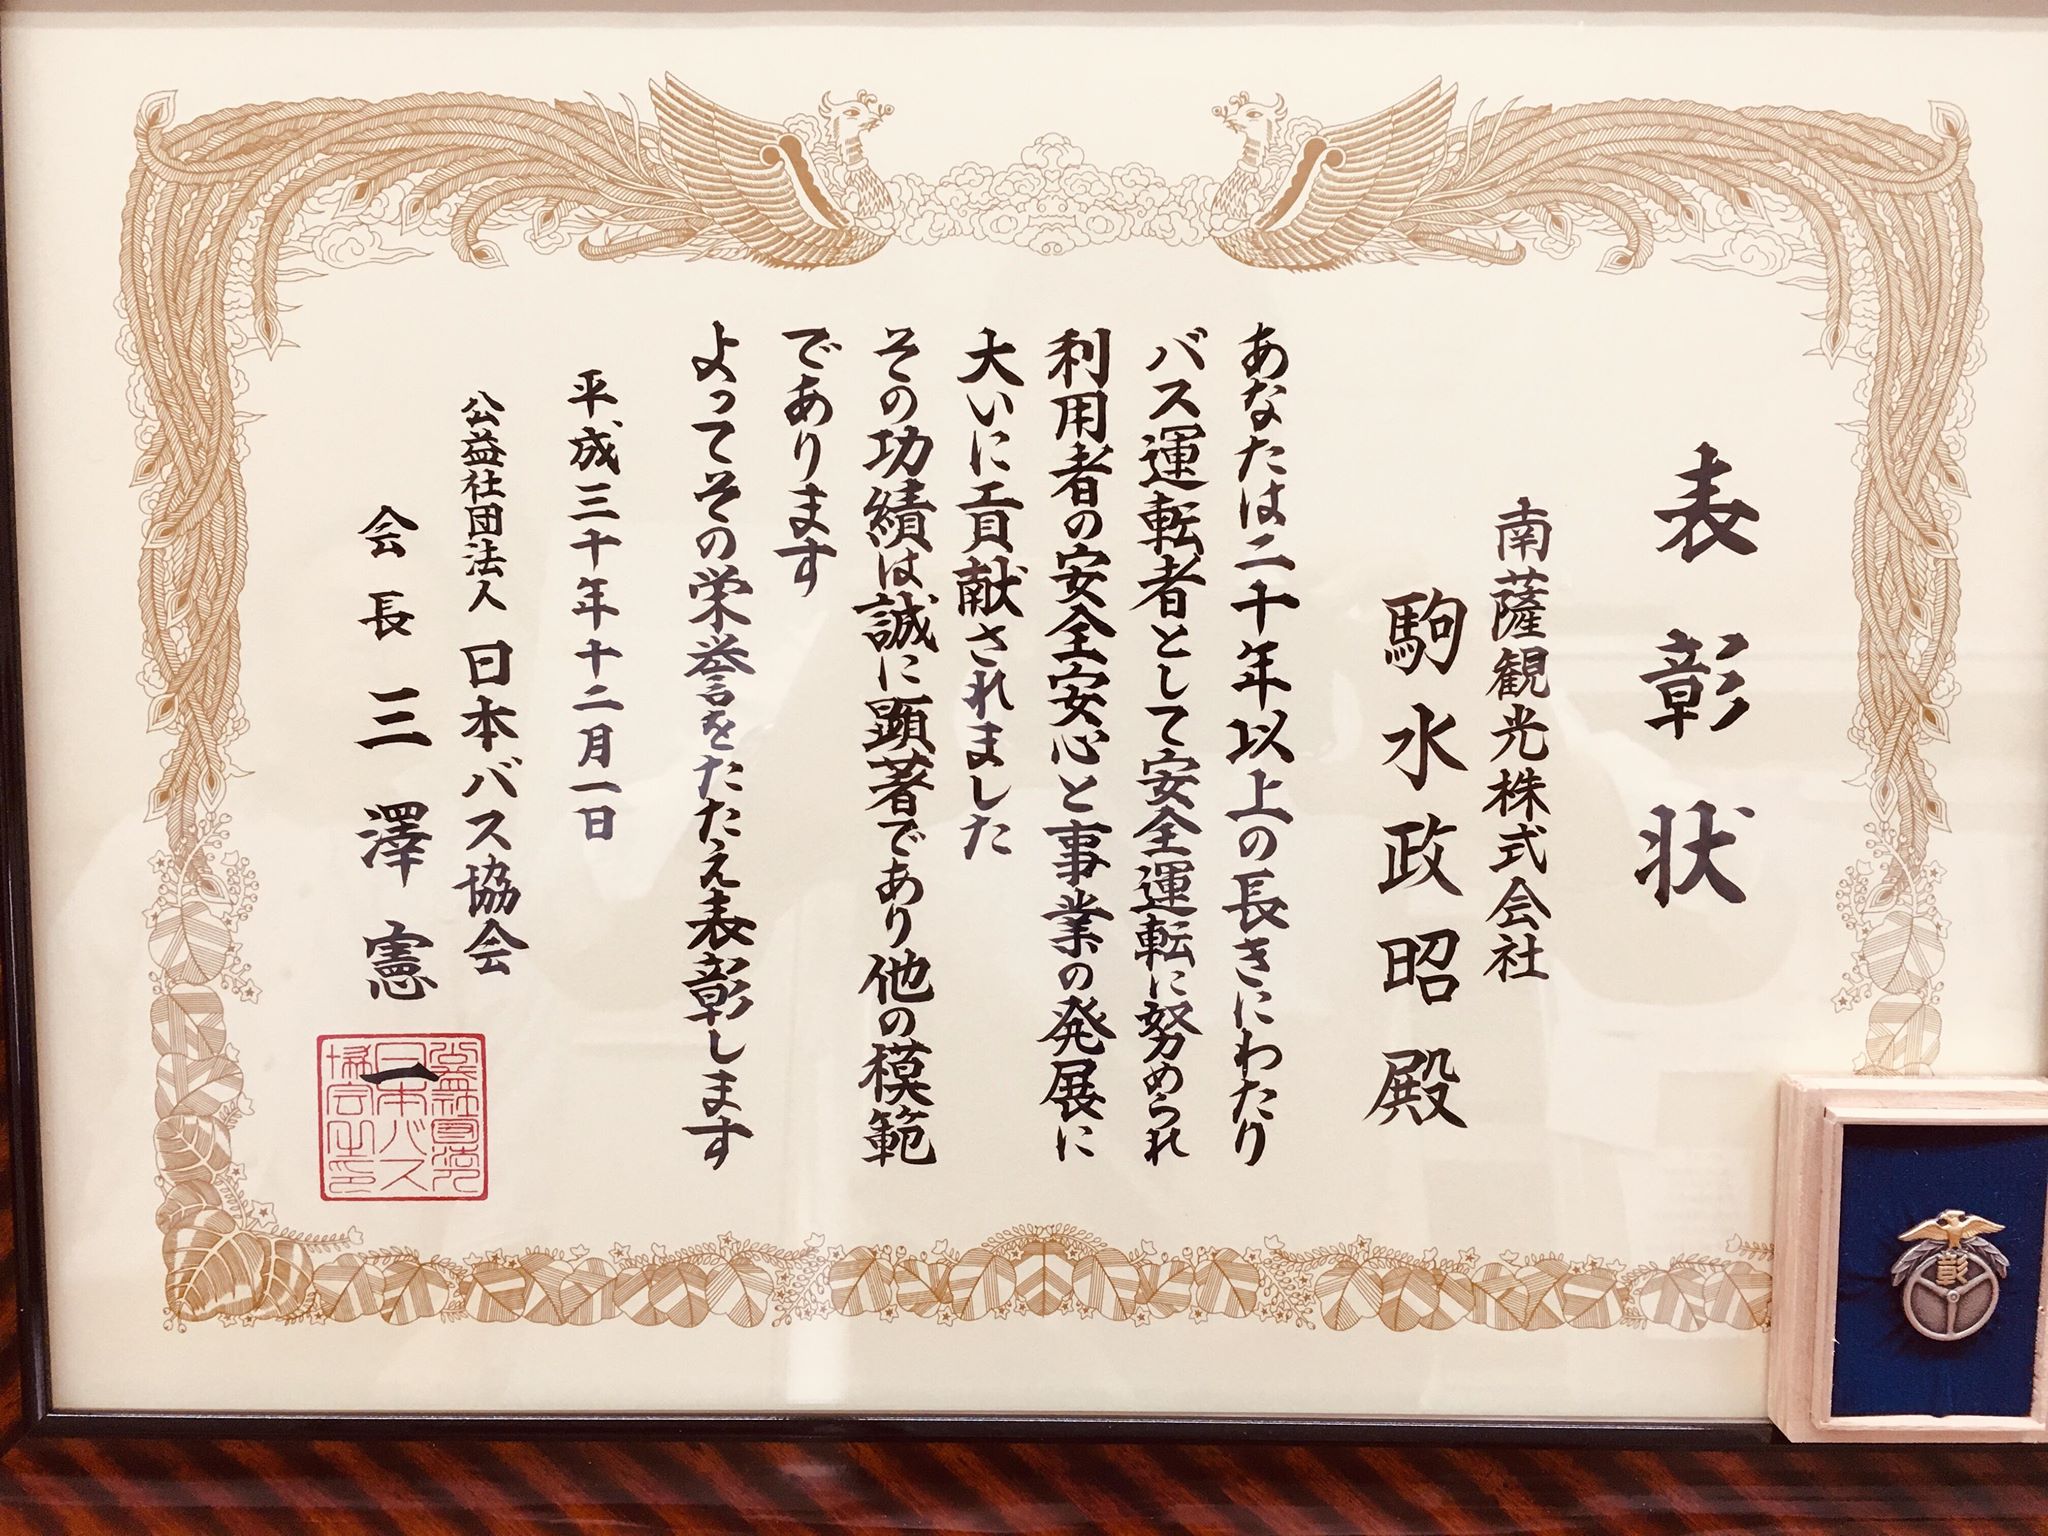 表彰状
南薩観光株式会社
駒水政昭殿
あなたは二十年以上の長きにわたり
バス運転者として安全運転に努められ
利用者の安全安心と事業の発展に
大いに貢献されました
その功績は誠に顕著であり他の模範
であります
よってその栄誉をたたえ表彰します
平成三十年十二月一日
公益社団法人日本バス協会
会長三澤憲一
公益社団法人
日本バス
協会之印